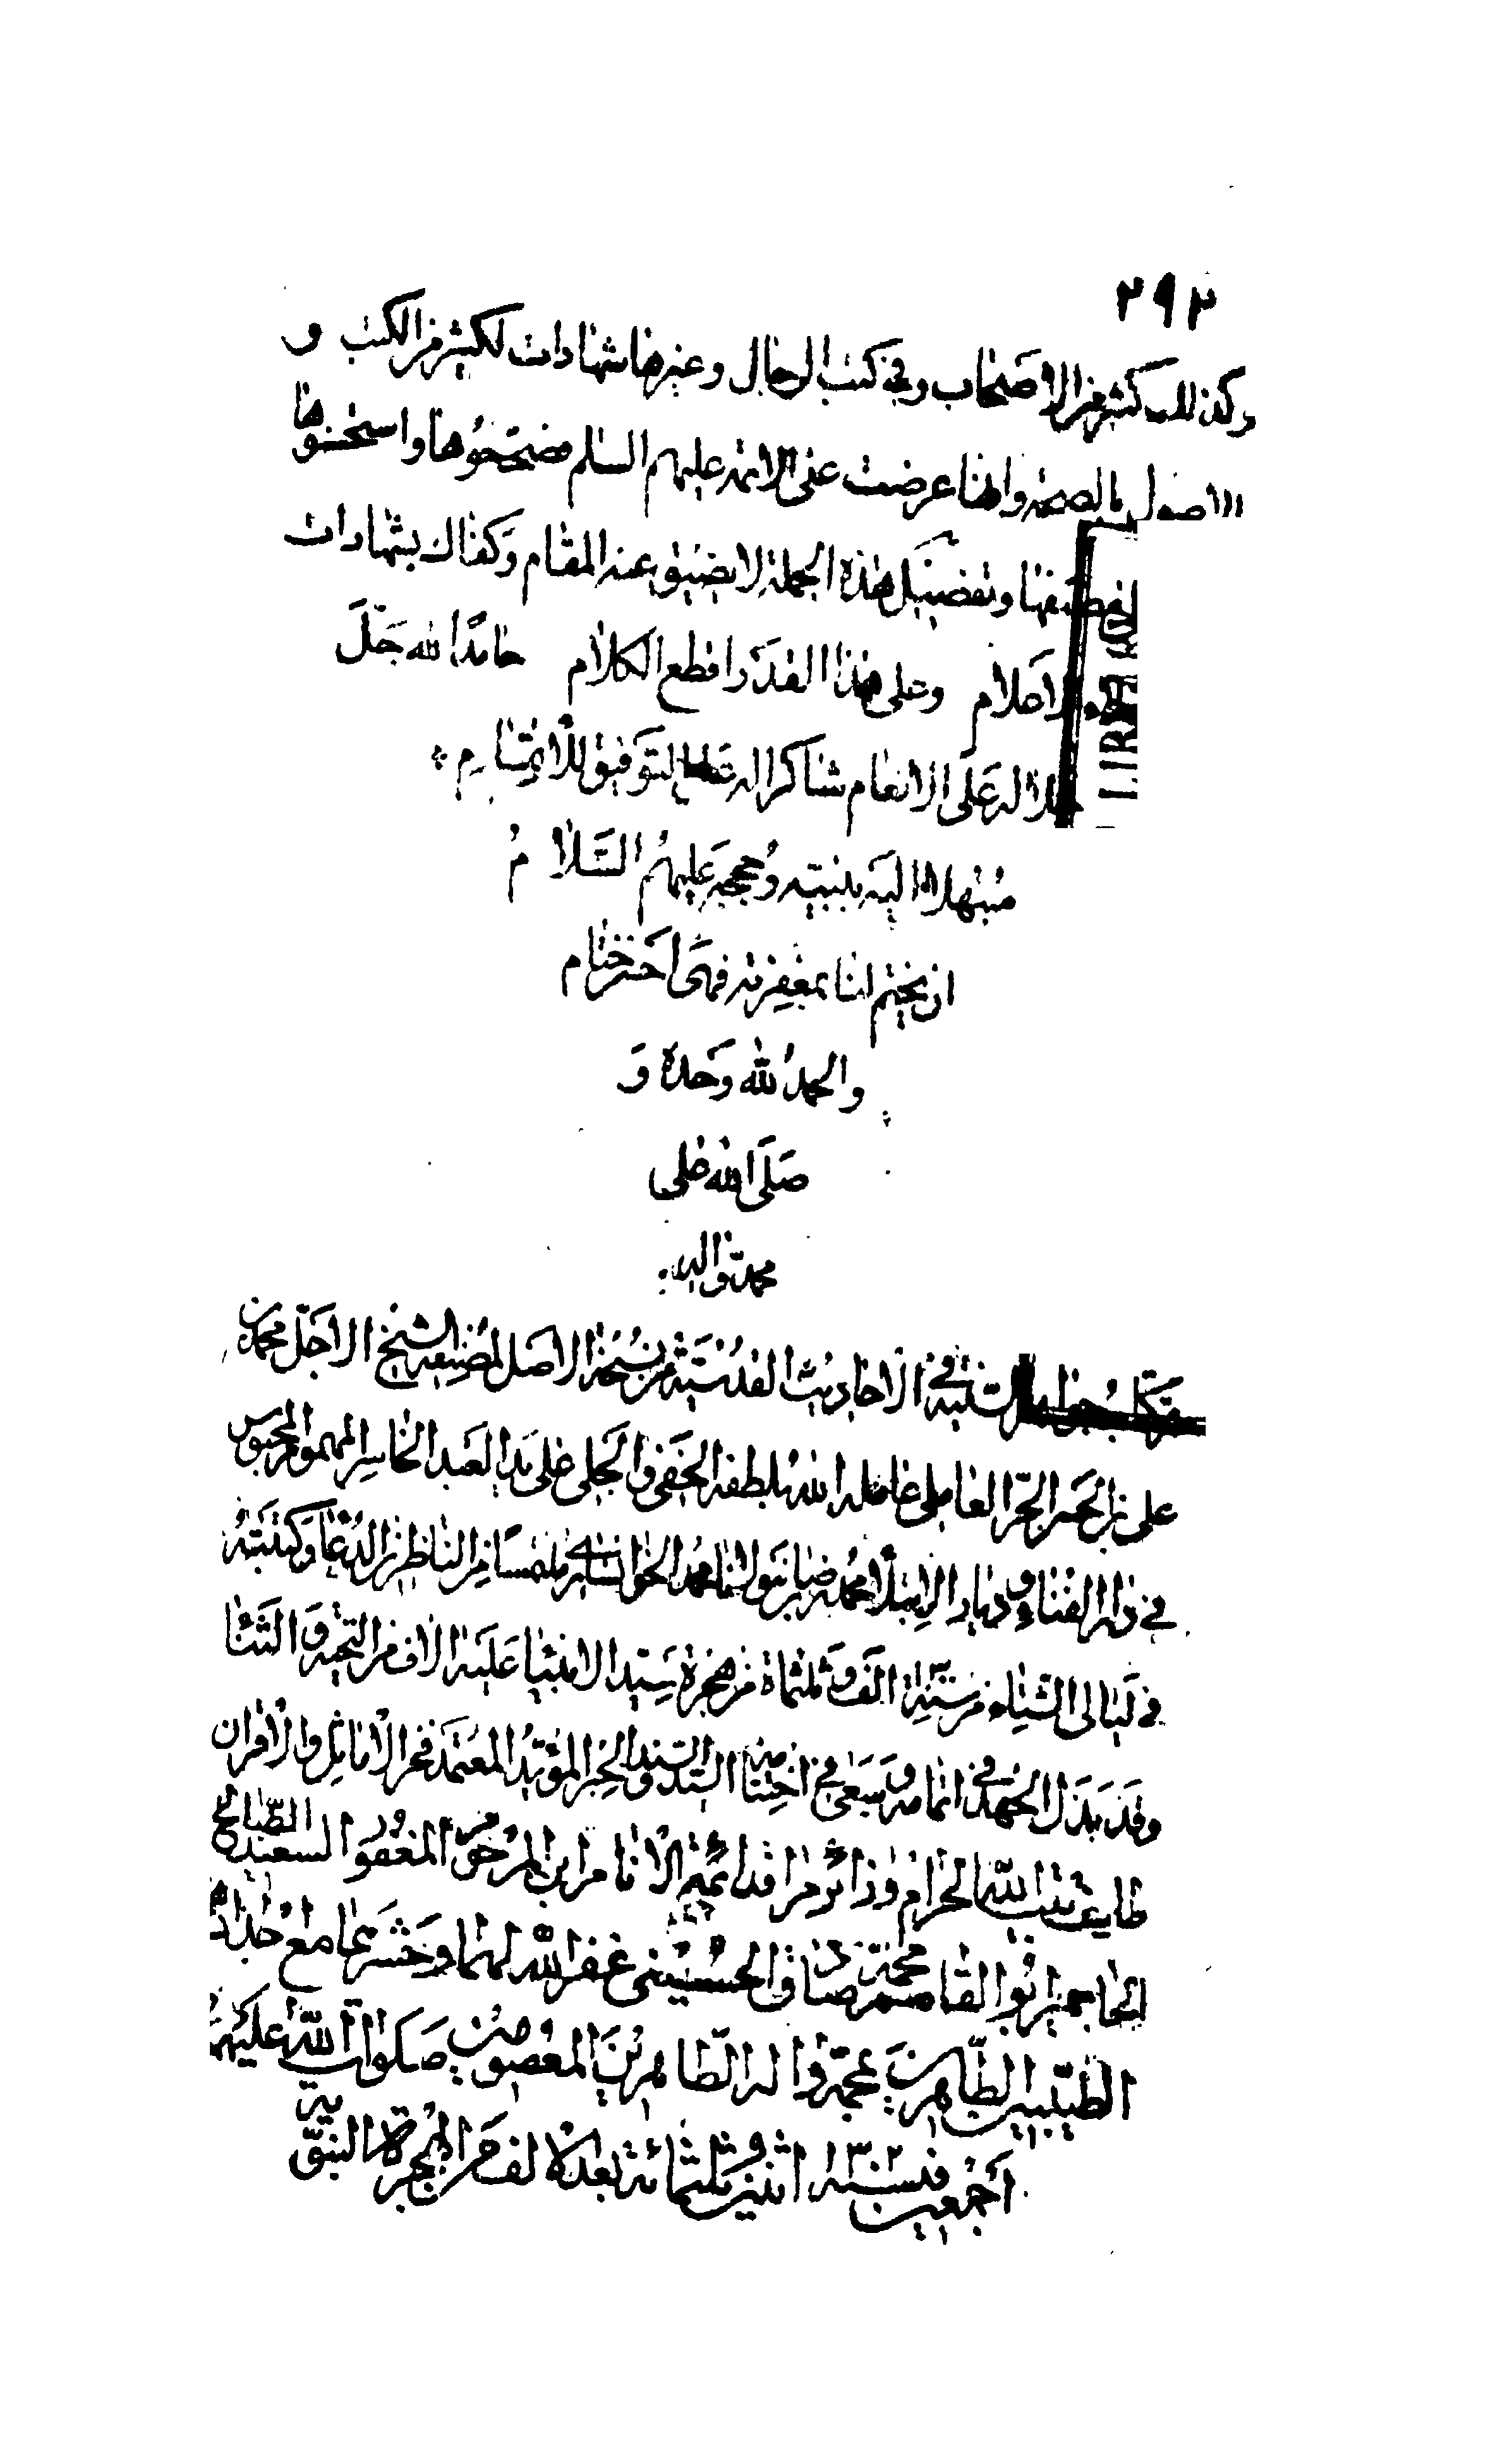 ٢٩٢
وكذلك كثير من الاصحاب وفي كتب الرجال وغيرها شهادات لكثير من الكتب و
الاصول بالصحة وانها عرضت على الائمه عليهم السلم فصححوها واستحسنوها
وتفصيل هذه الجملة لا يضيق عنه المقام وكفاك بشهادات
الاعلام وعلى هذا القدر اقطع الكلام حامدا لله جل
جلاله على الانعام شاكرا له على التوفيق للاتمام
مبتهلا اليه بنبيه وحججه عليهم السلام
ان يختم لنا بمغفرته فهى احسن ختام
والحمد لله وحده و
صلى الله على
محمد واله
السنية في الاحاديث القدسية من نسخة الاصل لمصنفه الشيخ الاجل محمد بن
على بن الحسن الحر العاملى عامله الله بلطفه الخفى والجلى على يد العبد الخاسر المهموم المحبوس
في دار الفناء وديار الابتلاء محمد رضا بن مولانا محمد الخوانسارى ملتمسا من الناظرين الدعا وكتبته
في ليالى الشتاء من سنة الف وثلثمائة من هجرة سيد الانبيا عليه الاف من التحية والثنا
وقد بذل الجهد في اتمامه وسعى في اختتامه السيد السند والحبر المؤيد المعتمد فخر الاماثل والاقران
طايف بيت الله الحرام وزائر مراقد ائمة الانام ابن المرحوم المغفور السعيد الصالح
الحاج ميرابو القاسم محمد صادق الحسينى غفر الله لهما وحشرهما مع اجداده
الطيبين الطاهرين بمحمد واله الطاهرين المعصومين صلوات الله عليهم
اجمعين في سنة ١٣٠٢ اثنين وثلثمائة بعد الالف من الهجرة النبوية